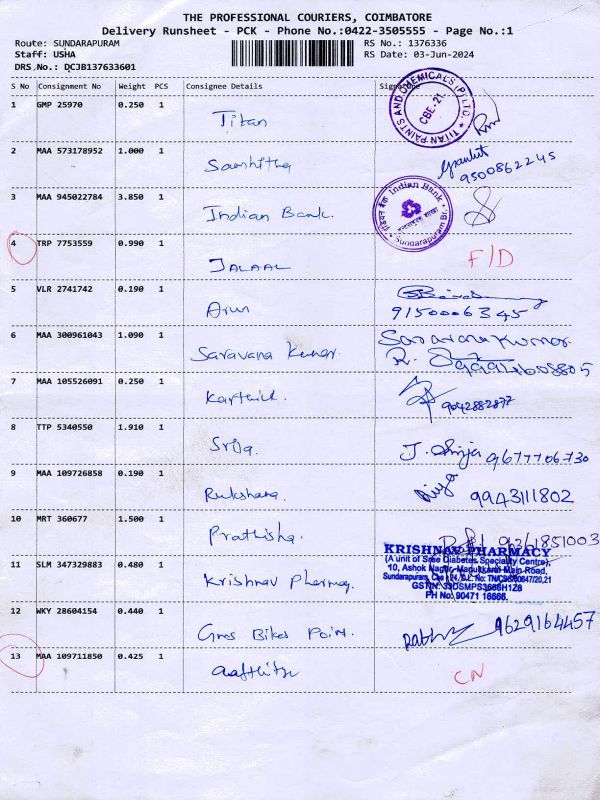 THE PROFESSIONAL COURIERS, COIMBATORE
Delivery Runsheet - PCK - Phone No.:0422-3505555 - Page No.:1
Route: SUNDARAPURAM
RS No.: 1376336
Staff: USHA
RS Date: 03-Jun-2024
DRS No.: DCJB137633601
S No Consignment No Weight PCS Consignee Details Signature
1 GMP 25970 0.250 1 Titan
TITAN PAINTS AND CHEMICALS (P) LTD.
CBE-21.
2 MAA 573178952 1.000 1 Samhitha
9500862245
3 MAA 945022784 3.850 1 Indian Bank.
Indian Bank
Sundarapuram Br.
4 TRP 7753559 0.990 1 JALAAL F/D
5 VLR 2741742 0.190 1 Arun
9150006345
6 MAA 300961043 1.090 1 Saravana Kumar. Saravana Kumar.
7 MAA 105526091 0.250 1 Karthick. 9042882877
8 TTP 5340550 1.910 1 Srija. J. Srija 9677706730
9 MAA 109726858 0.190 1 Rukshana. 9943111802
10 MRT 360677 1.500 1 Prathisha. 9361851003
11 SLM 347329883 0.480 1 Krishnav Pharmacy
KRISHNAV PHARMACY
(A unit of Sree Diabetes Speciality Centre),
10, Ashok Nagar, Madukkarai Main Road,
Sundarapuram,
PH No: 90471 16666.
12 WKY 28604154 0.440 1 Gms Bikes Point. 9629164457
13 MAA 109711850 0.425 1 CN